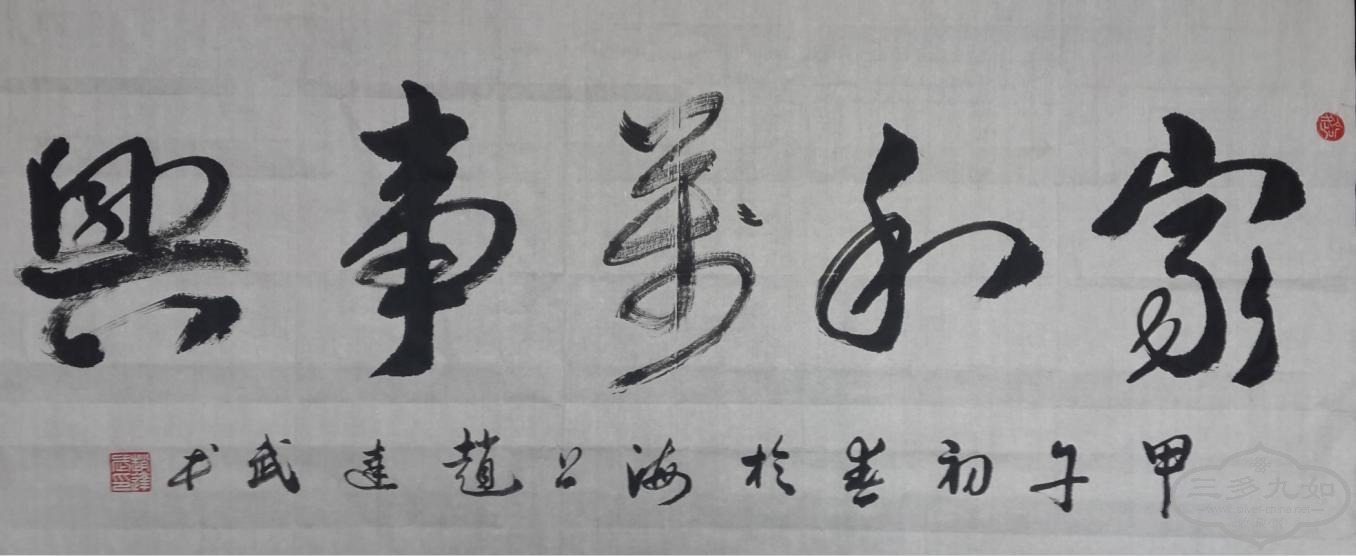 家和萬事興
甲午初春於海上趙達武书
三多九如
www.silver-china.net